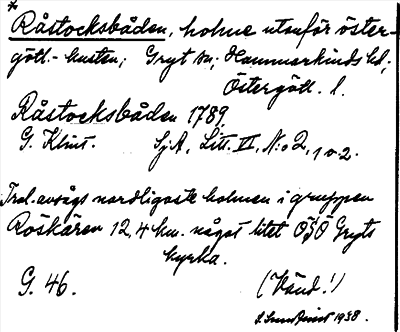 *
Råstocksbåden, holme utanför öster-
götl.-kusten; Gryt sn; Hammarkinds hd;
Östergötl. l.
Råstocksbåden 1789,
G. Klint. SjA, Litt. II, N:o 2, 1 o. 2.
Trol. avsågs nordligaste holmen i gruppen
Röskären 12,4 km. något litet OSO Gryts
kyrka.
G. 46. (Vänd!)
1938.